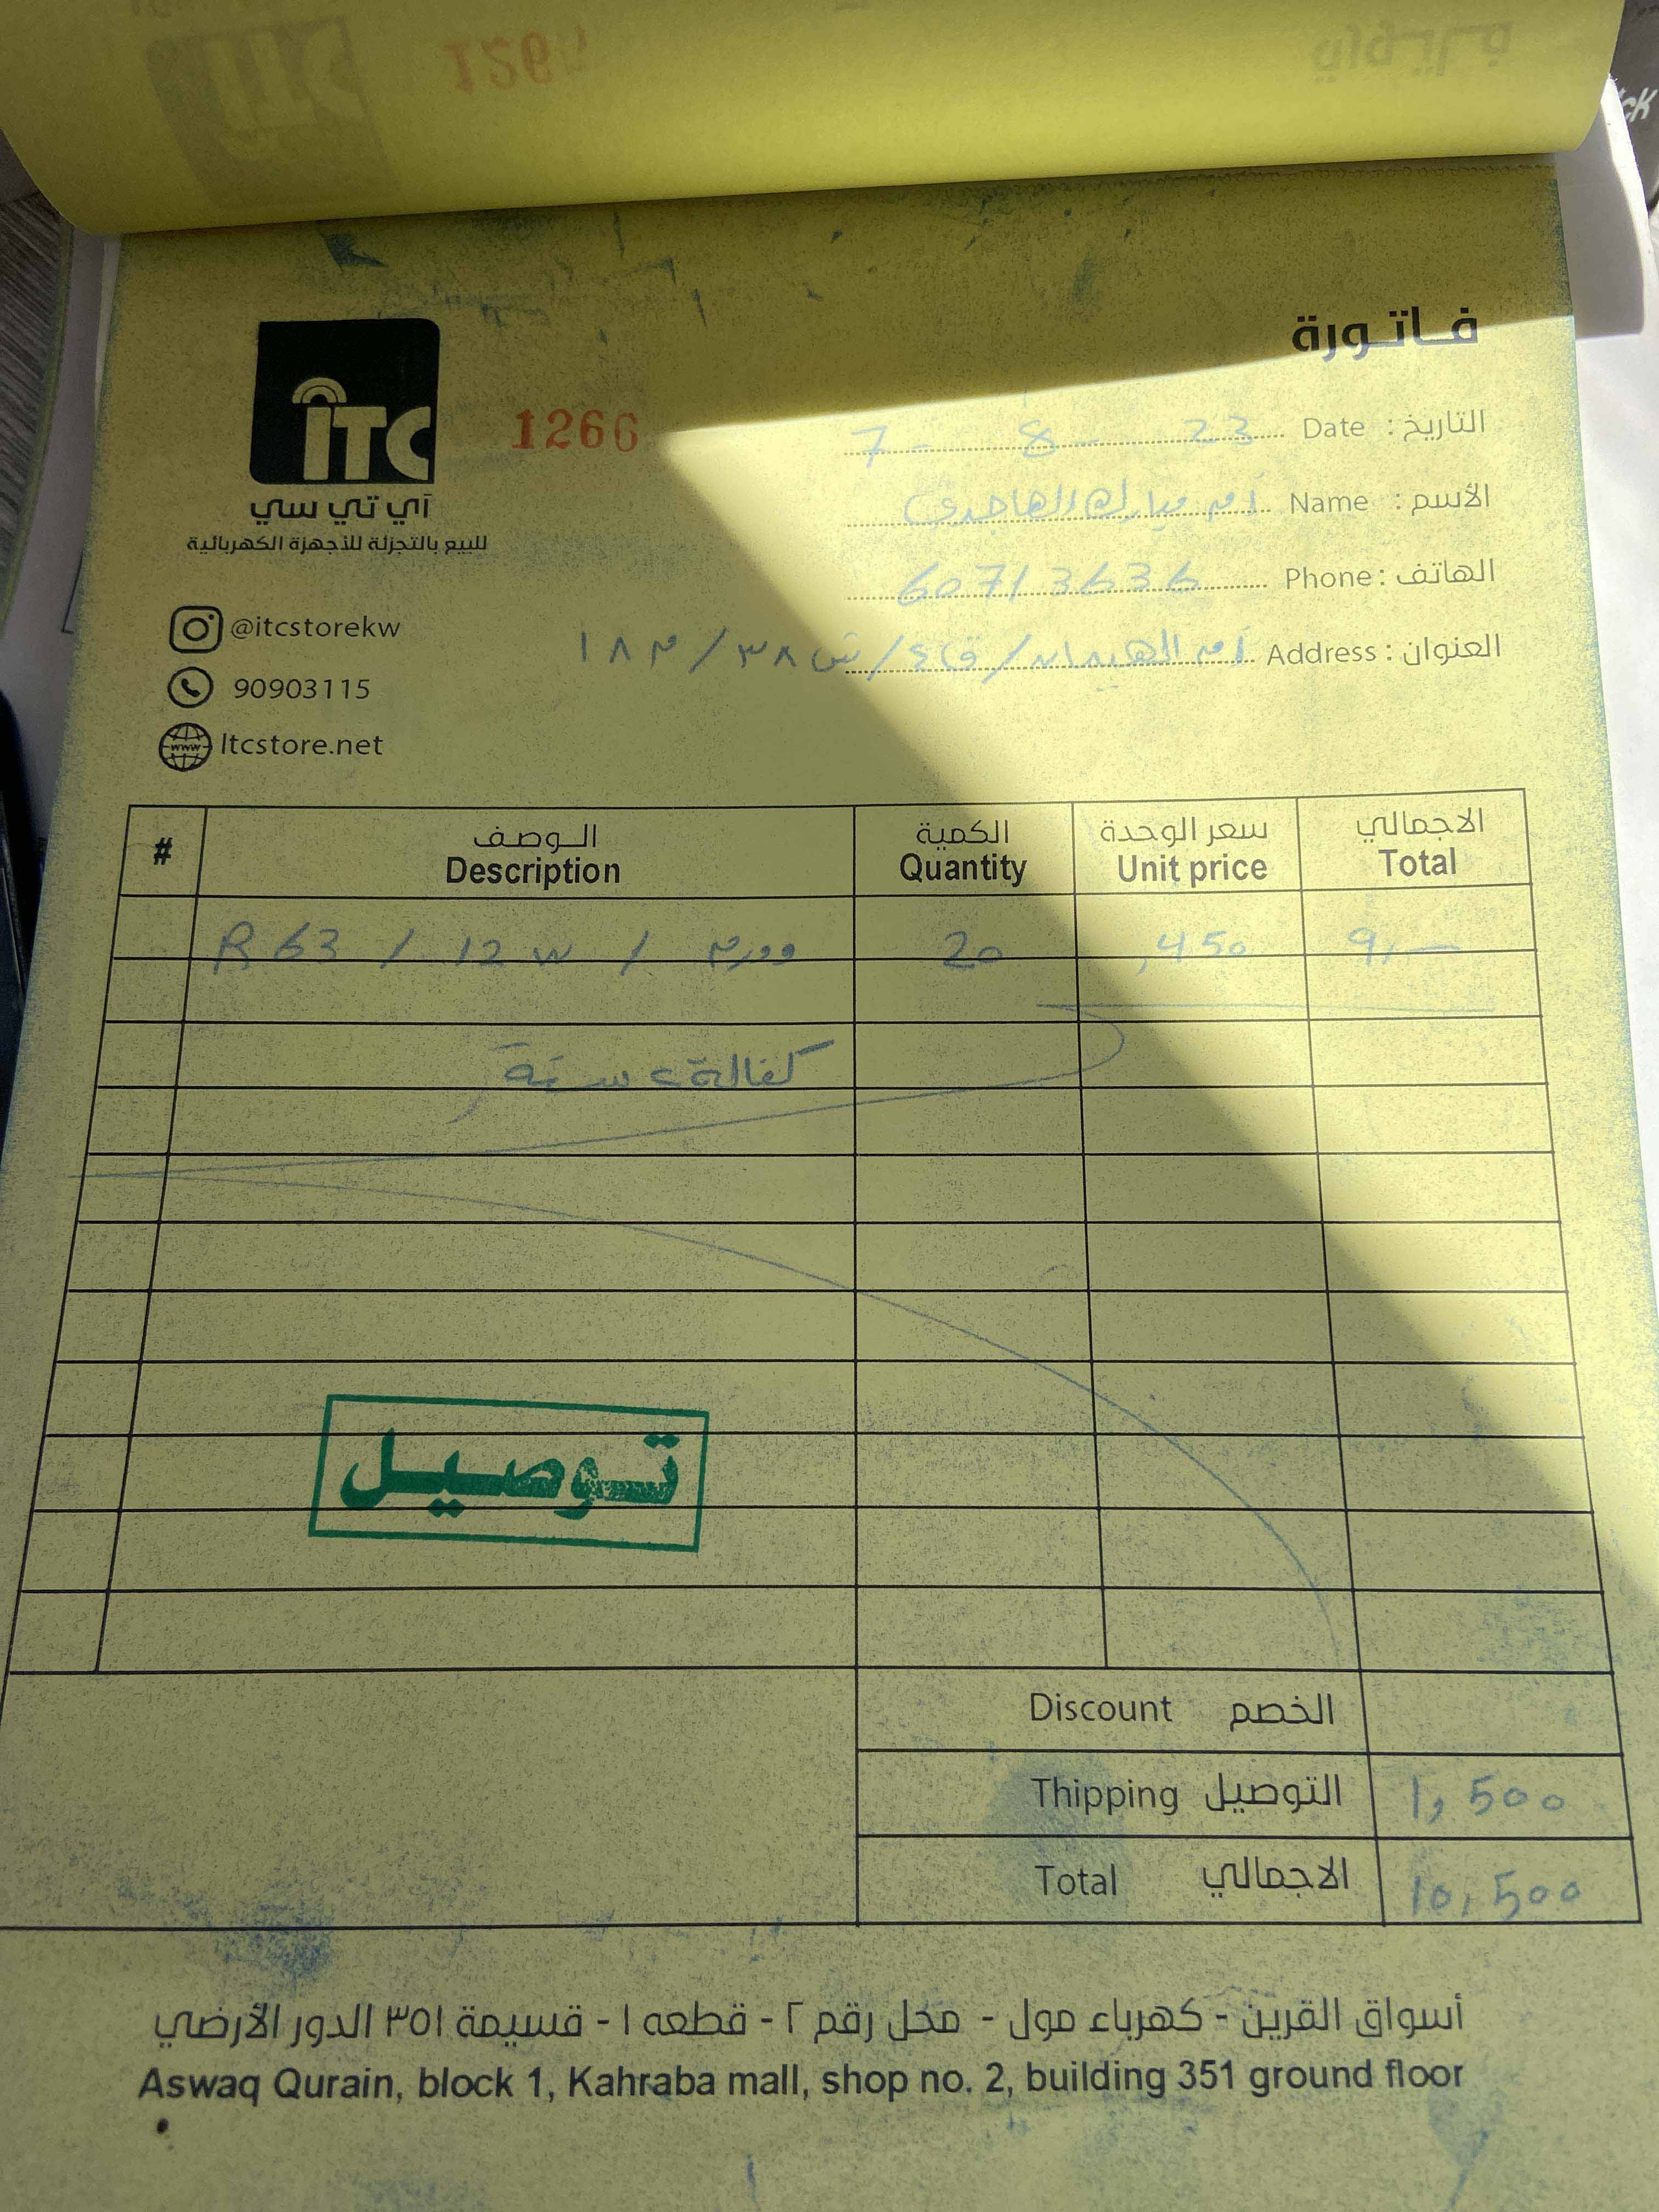 فاتورة
ITC
آي تي سي
للبيع بالتجزئة للأجهزة الكهربائية
1266
التاريخ : Date 7 - 8 - 23
الأسم : Name أم مبارك الهاجري
الهاتف : Phone 60713636
العنوان : Address أم الهيمان / ق٤ / ش ٣٨ / م ١٨
@itcstorekw
90903115
Itcstore.net
# الوصف الكمية سعر الوحدة الاجمالي
Description Quantity Unit price Total
R 63 / 12 W / وورم 20 ,450 9,—
كفالة ٢ سنة
توصيل
Discount الخصم
Thipping التوصيل 1,500
Total الاجمالي 10,500
أسواق القرين - كهرباء مول - محل رقم ٢ - قطعه ١ - قسيمة ٣٥١ الدور الأرضي
Aswaq Qurain, block 1, Kahraba mall, shop no. 2, building 351 ground floor